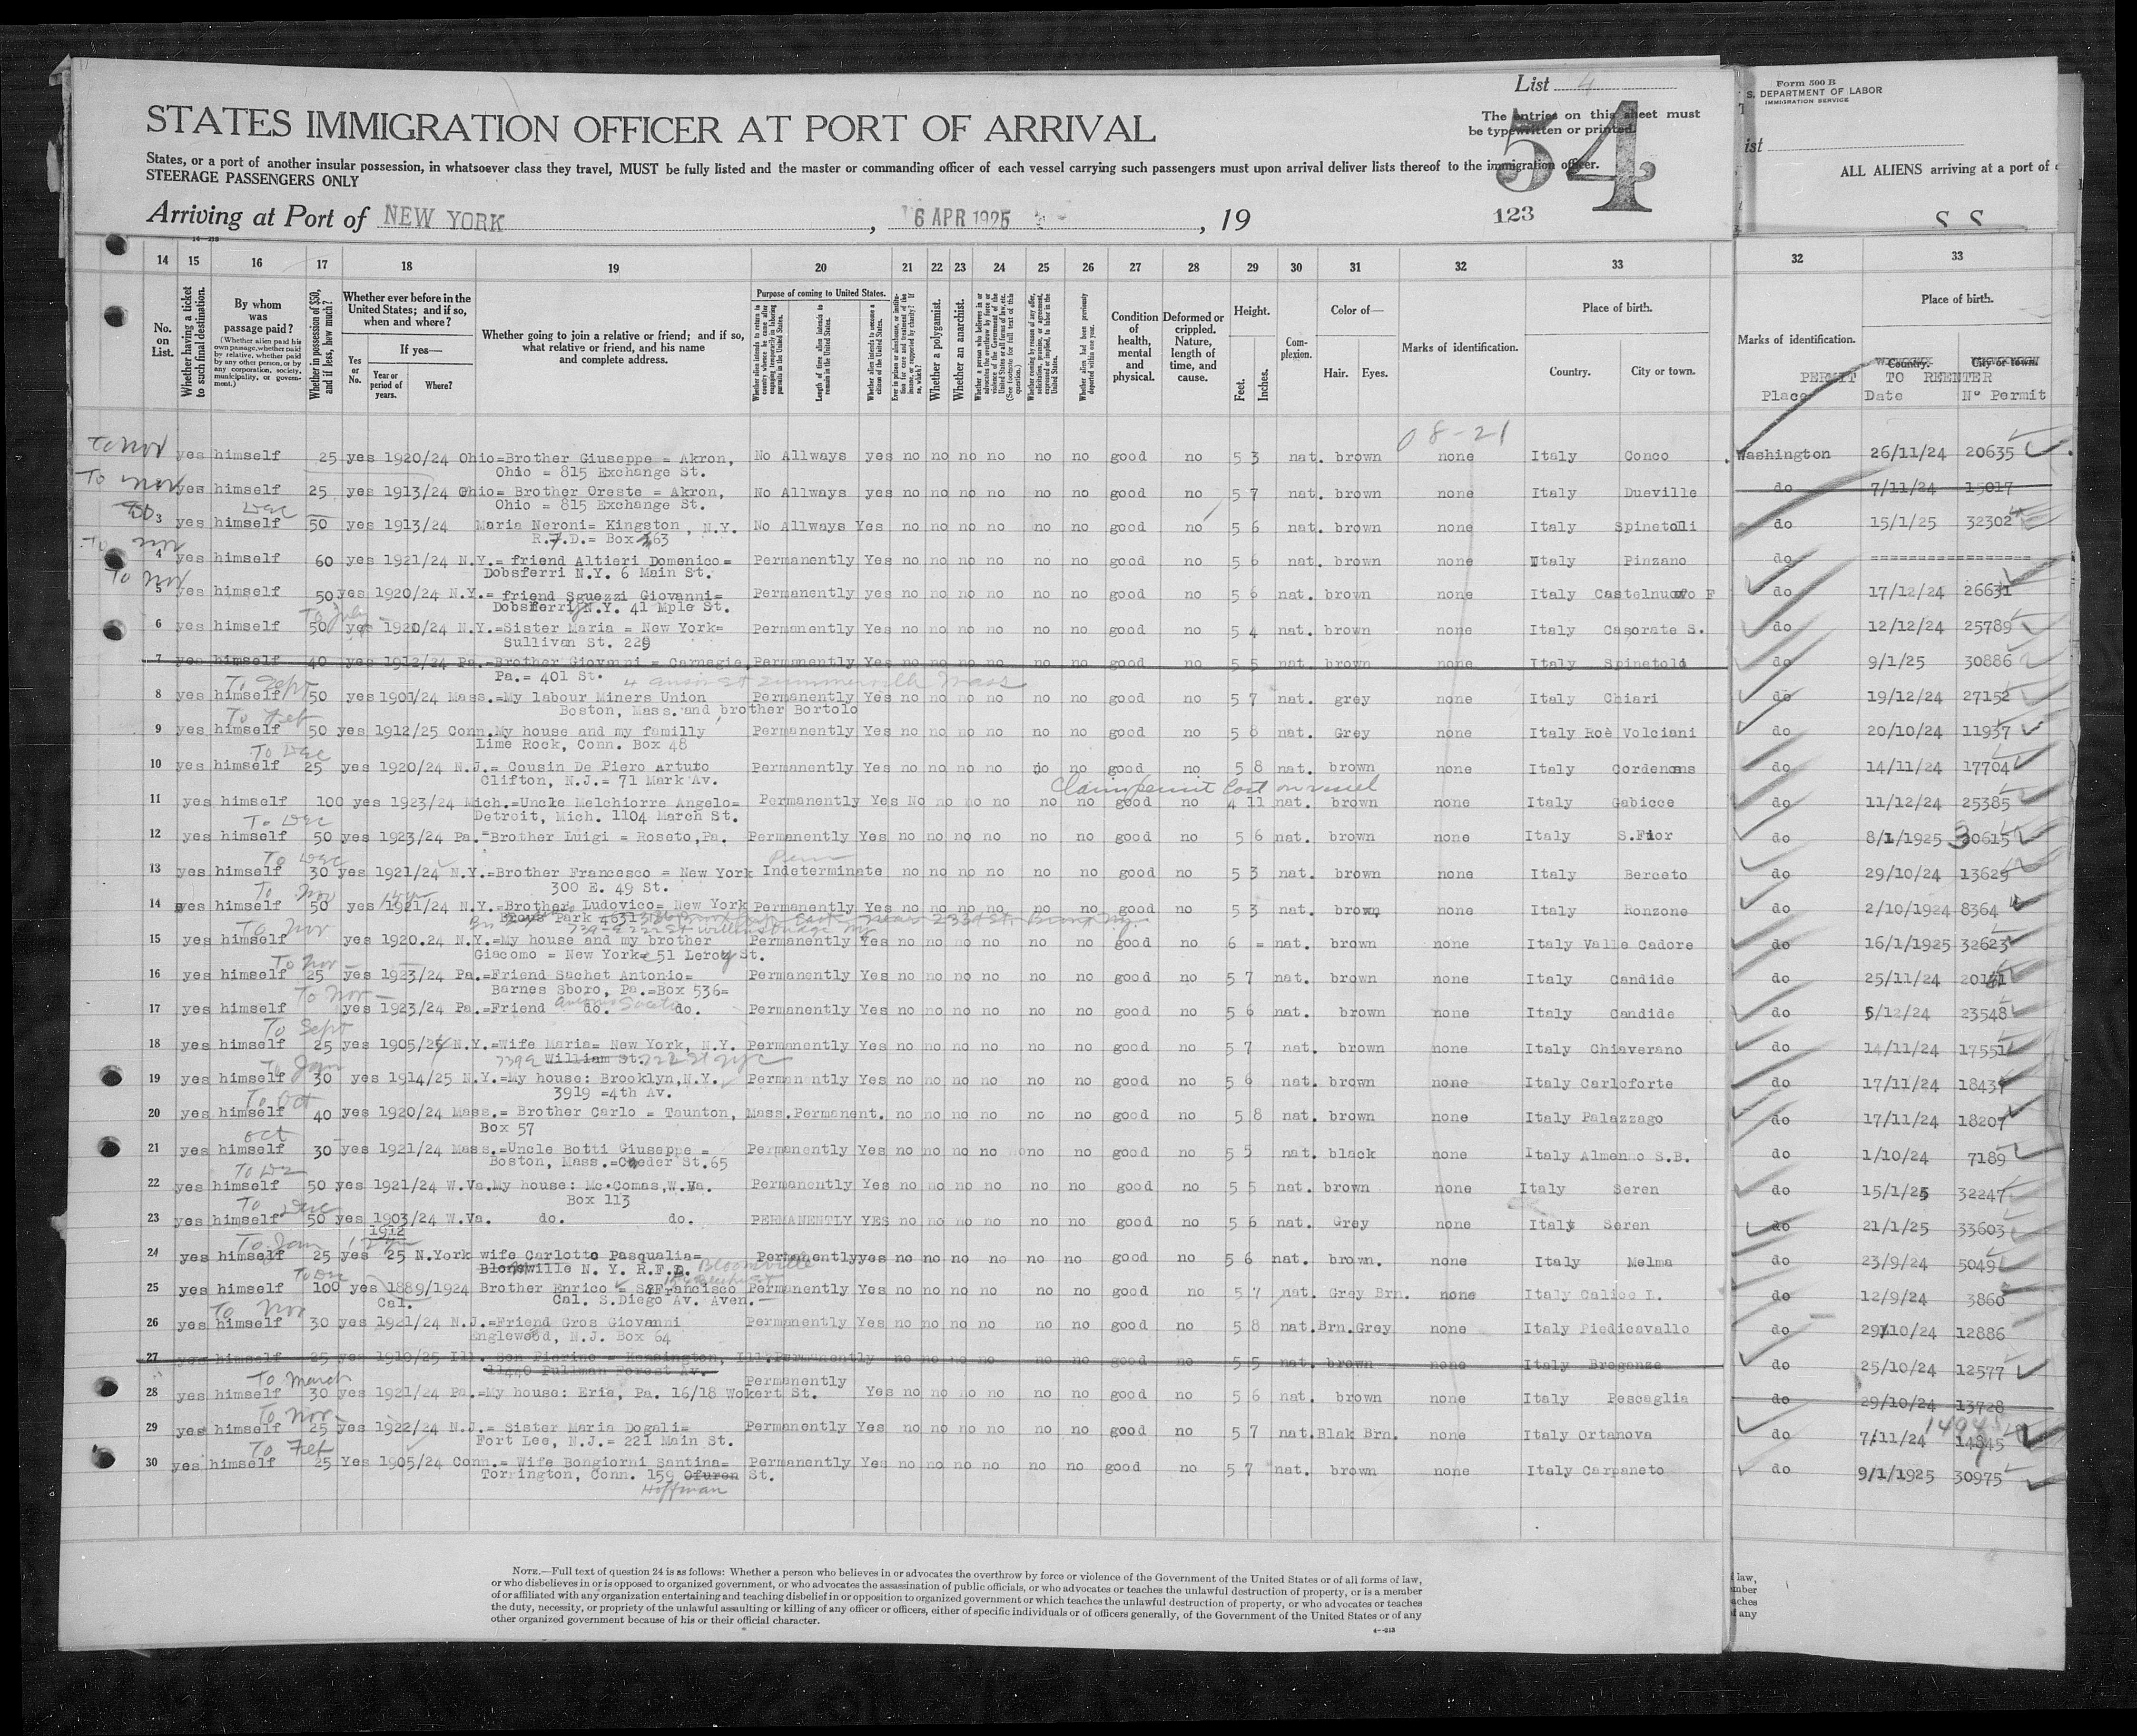 List 4
The entries on this sheet must
be typewritten or printed.
54
STATES IMMIGRATION OFFICER AT PORT OF ARRIVAL
States, or a port of another insular possession, in whatsoever class they travel, MUST be fully listed and the master or commanding officer of each vessel carrying such passengers must upon arrival deliver lists thereof to the immigration officer.
STEERAGE PASSENGERS ONLY
Arriving at Port of NEW YORK , 6 APR 1925 , 19
123
Form 500 B
S. DEPARTMENT OF LABOR
IMMIGRATION SERVICE
ist
ALL ALIENS arriving at a port of
S S
14 15 16 17 18 19 20 21 22 23 24 25 26 27 28 29 30 31 32 33 32 33
No. on List.
Whether having a ticket to such final destination.
By whom was passage paid?
(Whether alien paid his own passage, whether paid by relative, whether paid by any other person, or by any corporation, society, municipality, or government.)
Whether in possession of $50, and if less, how much?
Whether ever before in the United States; and if so, when and where?
Yes or No.
If yes—
Year or period of years.
Where?
Whether going to join a relative or friend; and if so, what relative or friend, and his name and complete address.
Purpose of coming to United States.
Length of time alien intends to remain in the United States.
Whether alien intends to become a citizen of the United States.
Whether a polygamist.
Whether an anarchist.
Condition of health, mental and physical.
Deformed or crippled. Nature, length of time, and cause.
Height.
Feet. Inches.
Complexion.
Color of—
Hair. Eyes.
Marks of identification.
Place of birth.
Country. City or town.
Marks of identification.
Place of birth.
Country. City or town.
PERMIT TO REENTER
Place Date Nº Permit
08-21
To Nov yes himself 25 yes 1920/24 Ohio=Brother Giuseppe = Akron, No Allways yes no no no no no no good no 5 3 nat. brown none Italy Conco Washington 26/11/24 20635
Ohio = 815 Exchange St.
To Nov yes himself 25 yes 1913/24 Ohio= Brother Oreste = Akron, No Allways yes no no no no no no good no 5 7 nat. brown none Italy Dueville do 7/11/24 15017
Ohio = 815 Exchange St.
Dec
3 yes himself 50 yes 1913/24 Maria Neroni= Kingston, N.Y. No Allways Yes no no no no no no good no 5 6 nat. brown none Italy Spinetoli do 15/1/25 32302
R.F.D.= Box 163
4 yes himself 60 yes 1921/24 N.Y.= friend Altieri Domenico= Permanently Yes no no no no no no good no 5 6 nat. brown none Italy Pinzano do ----------------
Dobsferri N.Y. 6 Main St.
To Nov
5 yes himself 50 yes 1920/24 N.Y.= friend Sguezzi Giovanni= Permanently yes no no no no no no good no 5 6 nat. brown none Italy Castelnuovo F do 17/12/24 26631
Dobsferri N.Y. 41 Mple St.
To July
6 yes himself 50 yes 1920/24 N.Y.=Sister Maria = New York= Permanently Yes no no no no no no good no 5 4 nat. brown none Italy Casorate S. do 12/12/24 25789
Sullivan St. 229
7 yes himself 40 yes 1912/24 Pa.=Brother Giovanni = Carnegie, Permanently Yes no no no no no no good no 5 5 nat. brown none Italy Spinetoli do 9/1/25 30886
Pa.= 401 St.
To Sept
8 yes himself 50 yes 1901/24 Mass.=My labour Miners Union Permanently Yes no no no no no no good no 5 7 nat. grey none Italy Chiari do 19/12/24 27152
Boston, Mass. and brother Bortolo
To Feb
9 yes himself 50 yes 1912/25 Conn.My house and my familly Permanently Yes no no no no no no good no 5 8 nat. Grey none Italy Roè Volciani do 20/10/24 11937
Lime Rock, Conn. Box 48
To Dec
10 yes himself 25 yes 1920/24 N.J.= Cousin De Piero Arturo Permanently Yes no no no no no no good no 5 8 nat. brown none Italy Cordenons do 14/11/24 17704
Clifton, N.J.= 71 Mark Av.
Claim permit lost on vessel
11 yes himself 100 yes 1923/24 Mich.=Uncle Melchiorre Angelo= Permanently Yes No no no no no no good no 4 11 nat. brown none Italy Gabicce do 11/12/24 25385
Detroit, Mich. 1104 March St.
To Dec
12 yes himself 50 yes 1923/24 Pa.=Brother Luigi = Roseto,Pa. Permanently Yes no no no no no no good no 5 6 nat. brown none Italy S.Fior do 8/1/1925 30615
To Dec
13 yes himself 30 yes 1921/24 N.Y.=Brother Francesco = New York Indeterminate no no no no no no good no 5 3 nat. brown none Italy Berceto do 29/10/24 13629
300 E. 49 St.
To Nov
14 yes himself 50 yes 1921/24 N.Y.=Brother Ludovico= New York Permanently Yes no no no no no no good no 5 3 nat. brown none Italy Ronzone do 2/10/1924 8364
To Nov
15 yes himself yes 1920.24 N.Y.=My house and my brother Permanently Yes no no no no no no good no 6 = nat. brown none Italy Valle Cadore do 16/1/1925 32623
Giacomo = New York= 51 Leroy St.
To Nov
16 yes himself 25 yes 1923/24 Pa.=Friend Sachet Antonio= Permanently Yes no no no no no no good no 5 7 nat. brown none Italy Candide do 25/11/24
Barnes Sboro, Pa.=Box 536=
To Nov
17 yes himself yes 1923/24 Pa.=Friend do. do. Permanently Yes no no no no no no good no 5 6 nat. brown none Italy Candide do 5/12/24 23548
To Sept
18 yes himself 25 yes 1905/24 N.Y.=Wife Maria= New York, N.Y. Permanently Yes no no no no no no good no 5 7 nat. brown none Italy Chiaverano do 14/11/24 17551
William St.
To Jan
19 yes himself 30 yes 1914/25 N.Y.=My house: Brooklyn,N.Y. Permanently Yes no no no no no no good no 5 6 nat. brown none Italy Carloforte do 17/11/24 18439
3919 =4th Av.
To Oct
20 yes himself 40 yes 1920/24 Mass.= Brother Carlo = Taunton, Mass.Permanent. no no no no no no good no 5 8 nat. brown none Italy Palazzago do 17/11/24 18207
Box 57
Oct
21 yes himself 30 yes 1921/24 Mass.=Uncle Botti Giuseppe = Permanently Yes no no no no no no good no 5 5 nat. black none Italy Almenno S.B. do 1/10/24 7189
Boston, Mass.=Cheder St.65
22 yes himself 50 yes 1921/24 W.Va.My house: Mc.Comas,W.Va. Permanently Yes no no no no no no good no 5 5 nat. brown none Italy Seren do 15/1/25 32247
Box 113
To Dec
23 yes himself 50 yes 1903/24 W.Va. do. do. PERMANENTLY YES no no no no no no good no 5 6 nat. Grey none Italy Seren do 21/1/25 33603
1912
To Jan
24 yes himself 25 yes 25 N.York wife Carlotto Pasqualia= Permanently yes no no no no no no good no 5 6 nat. brown. none Italy Melma do 23/9/24 5049
Blomville N. Y. R.F.D. Bloomville
To Dec
25 yes himself 100 yes 1889/1924 Brother Enrico = S.Francisco Permanently Yes no no no no no no good no 5 7 nat. Grey Brn. none Italy Calice L. do 12/9/24 3860
Cal. Cal. S.Diego Av. Aven.
To Nov
26 yes himself 30 yes 1921/24 N.J.=Friend Gros Giovanni Permanently Yes no no no no no no good no 5 8 nat.Brn.Grey none Italy Piedicavallo do 29/10/24 12886
Englewood, N.J. Box 64
27 yes himself 25 yes 1910/25 Ill. Son Pierino = Kensington, Ill.Permanently no no no no no no good no 5 5 nat. brown none Italy Breganze do 25/10/24 12577
11440 Pullman Forest Av.
To March Permanently
28 yes himself 30 yes 1921/24 Pa.=My house: Erie, Pa. 16/18 Wokert St. Yes no no no no no no good no 5 6 nat. brown none Italy Pescaglia do 29/10/24 13728
To Nov.
29 yes himself 25 yes 1922/24 N.J.= Sister Maria Dogali= Permanently Yes no no no no no no good no 5 7 nat.Blak Brn. none Italy Ortanova do 7/11/24 14845
Fort Lee, N.J.= 221 Main St.
To Feb
30 yes himself 25 Yes 1905/24 Conn.= Wife Bongiorni Santina= Permanently Yes no no no no no no good no 5 7 nat. brown none Italy Carpaneto do 9/1/1925 30975
Torrington, Conn. 159 Ofuron St.
Hoffman
NOTE.—Full text of question 24 is as follows: Whether a person who believes in or advocates the overthrow by force or violence of the Government of the United States or of all forms of law,
or who disbelieves in or is opposed to organized government, or who advocates the assassination of public officials, or who advocates or teaches the unlawful destruction of property, or is a member
of or affiliated with any organization entertaining and teaching disbelief in or opposition to organized government or which teaches the unlawful destruction of property, or who advocates or teaches
the duty, necessity, or propriety of the unlawful assaulting or killing of any officer or officers, either of specific individuals or of officers generally, of the Government of the United States or of any
other organized government because of his or their official character.